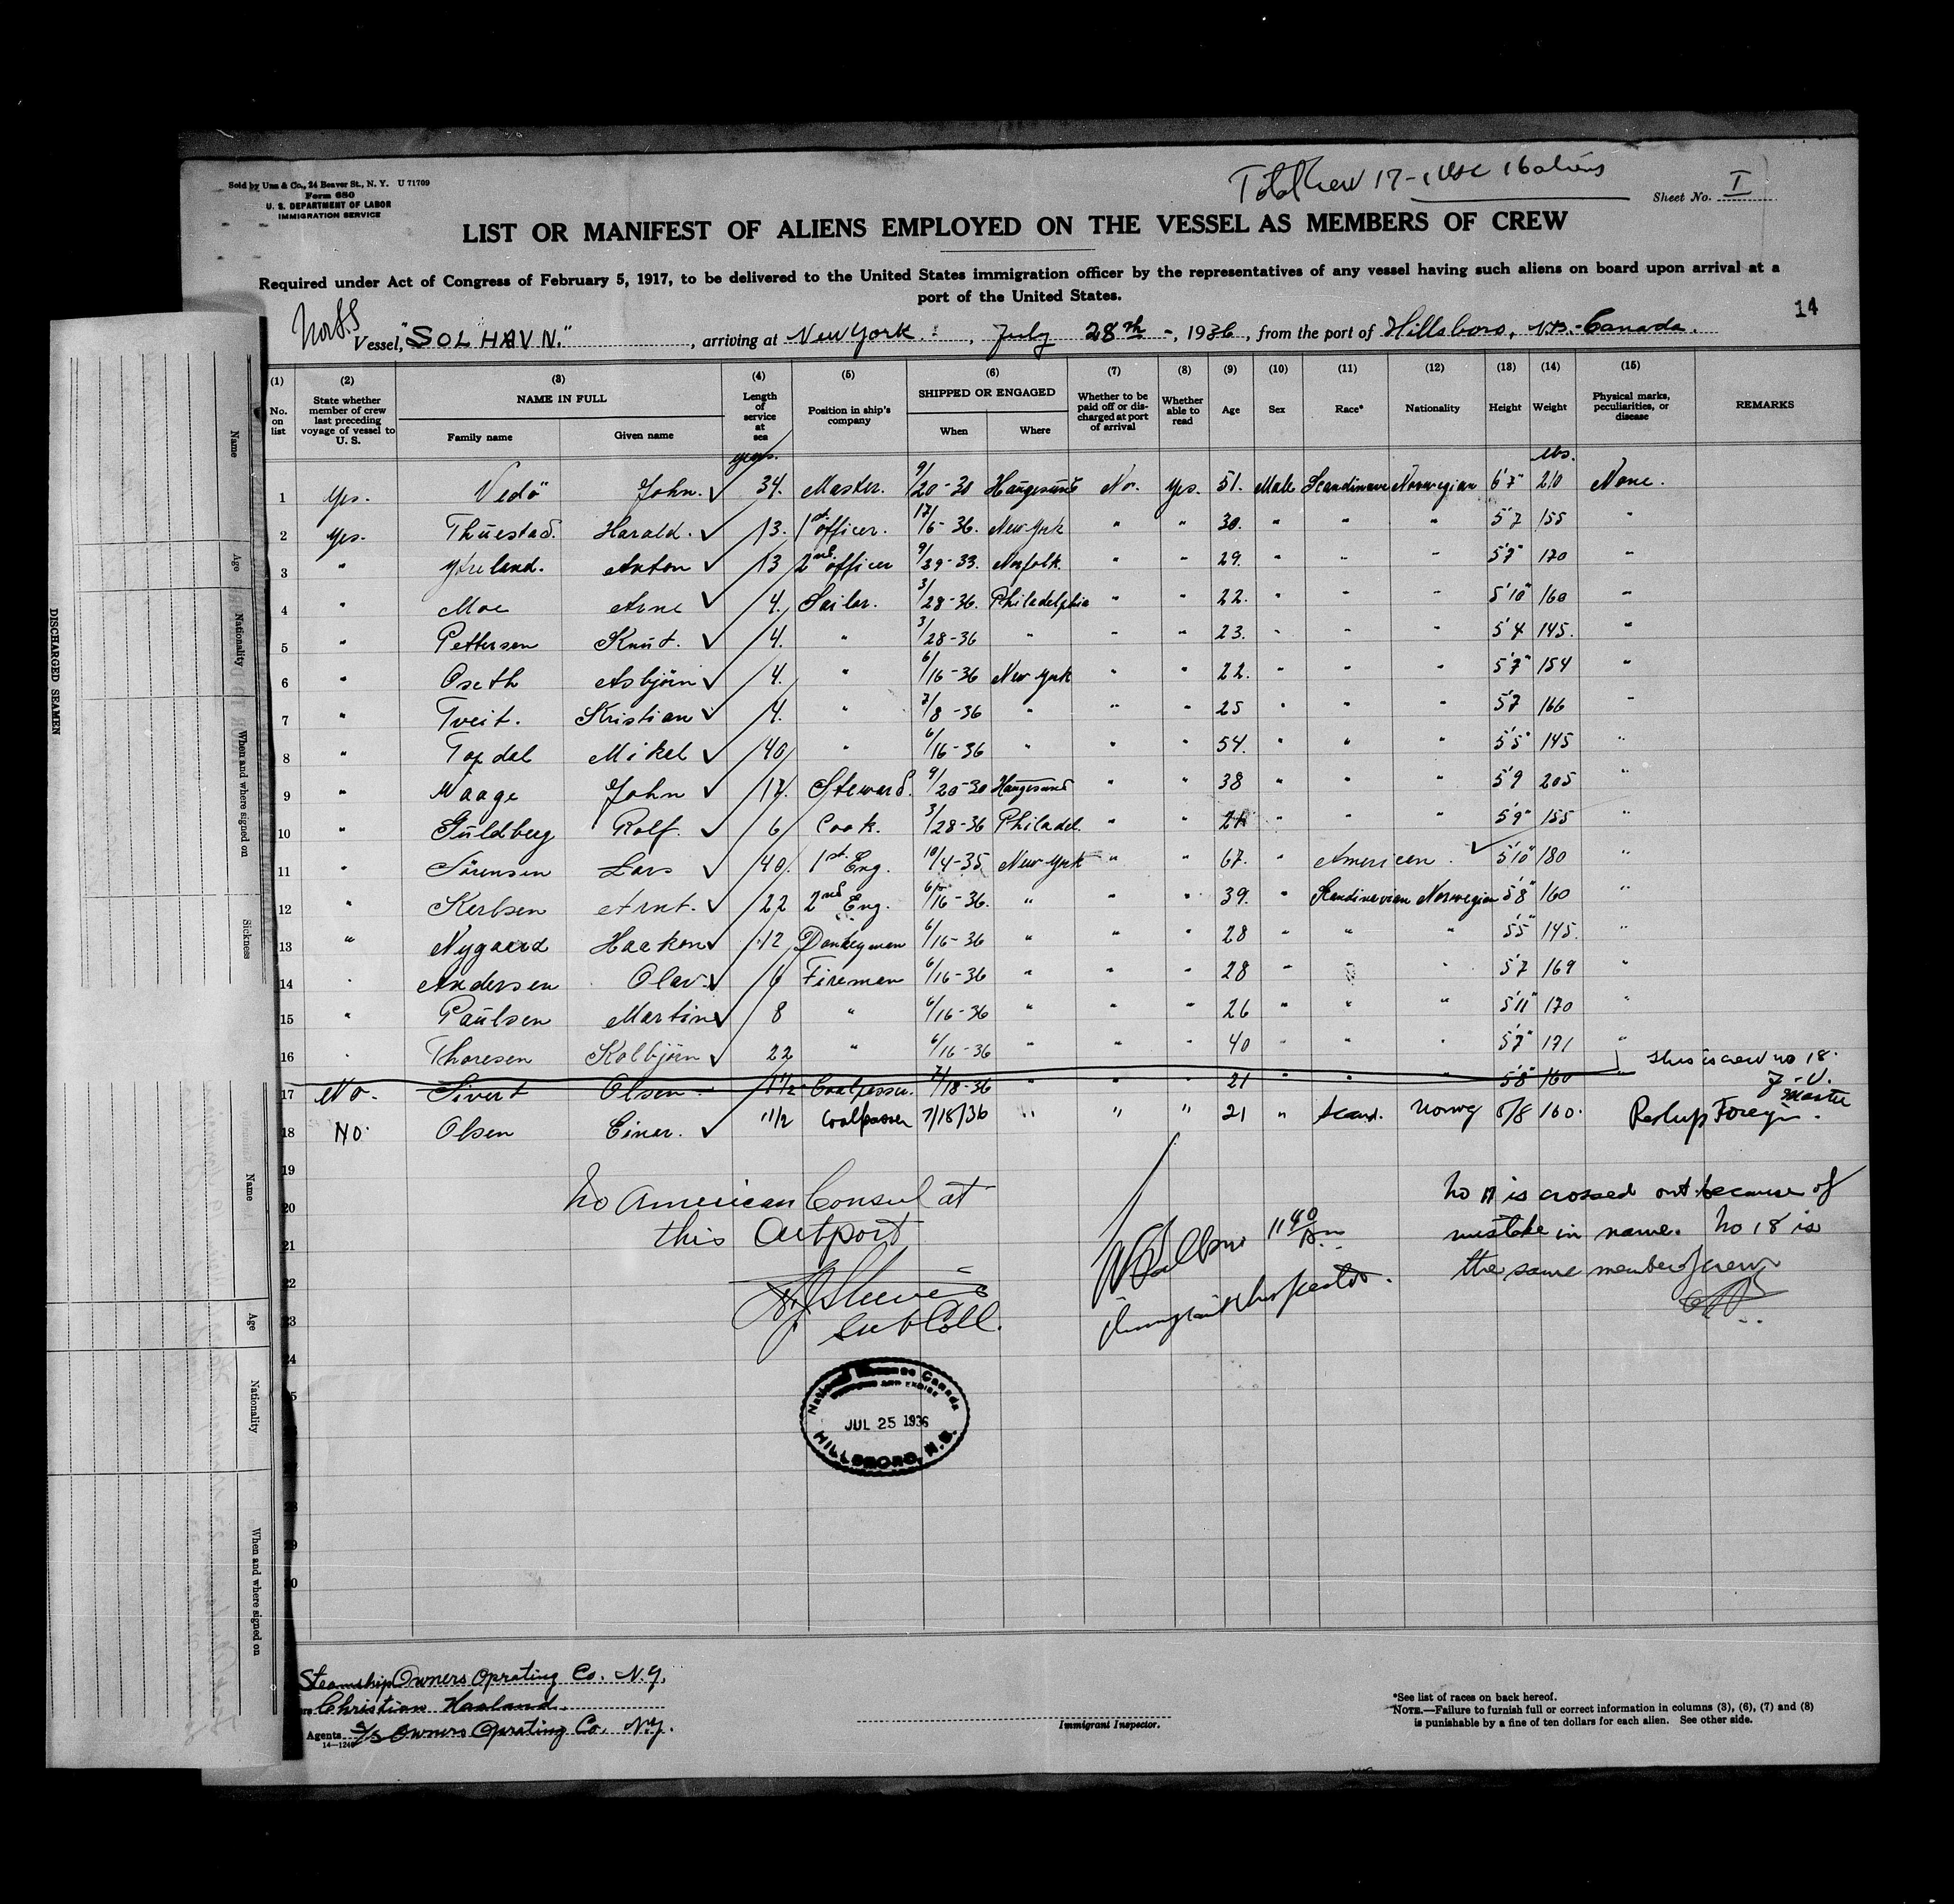 Sold by Unz & Co., 24 Beaver St., N. Y. U 71709
Form 680
U. S. DEPARTMENT OF LABOR
IMMIGRATION SERVICE
Total Crew 17 - 1 USC 16 aliens
Sheet No. I
LIST OR MANIFEST OF ALIENS EMPLOYED ON THE VESSEL AS MEMBERS OF CREW
Required under Act of Congress of February 5, 1917, to be delivered to the United States immigration officer by the representatives of any vessel having such aliens on board upon arrival at a
port of the United States.
14
Nor S.S Vessel, "SOLHAVN." , arriving at New York. , July 28th - , 1936, from the port of Hillsboro, N.B. - Canada.
(1) (2) (3) (4) (5) (6) (7) (8) (9) (10) (11) (12) (13) (14) (15)
No. on list State whether member of crew last preceding voyage of vessel to U. S. NAME IN FULL Family name Given name Length of service at sea Position in ship's company SHIPPED OR ENGAGED When Where Whether to be paid off or discharged at port of arrival Whether able to read Age Sex Race* Nationality Height Weight Physical marks, peculiarities, or disease REMARKS
years. lbs.
1 Yes. Vedö John. ✓ 34. Master. 9/20-30 Haugesund No. Yes. 51. Male Scandinave Norwegian 6'7" 210 None.
2 Yes. Thuestad. Harald. ✓ 13. 1st officer. 17/6-36. New York " " 30. " " " 5'7 155 "
3 " Anton ✓ 13 2nd officer 9/29-33. Norfolk. " " 29. " " " 5'7" 170 "
4 " Moe Arne ✓ 4. Sailor. 3/28-36. Philadelphia " " 22. " " " 5'10" 160 "
5 " Pettersen Knut. ✓ 4. " 3/28-36 " " " 23. " " " 5'4 145. "
6 " Oseth Asbjörn ✓ 4. " 6/16-36 New York " " 22. " " " 5'7" 154 "
7 " Tveit. Kristian ✓ 4. " 7/8-36 " " " 25 " " " 5'7 166 "
8 " Topdal Mikel ✓ 40 " 6/16-36 " " " 54. " " " 5'5" 145 "
9 " Waage John ✓ 17. Steward. 9/20-30 Haugesund " " 38 " " " 5'9 205 "
10 " Guldberg Rolf. ✓ 6 Cook. 3/28-36 Philadel. " " " " " 5'9" 155 "
11 " Sörensen Lars ✓ 40. 1st Eng. 10/4-35 New York " " 67. " American. ✓ 5'10" 180 "
12 " Arnt. ✓ 22 2nd Eng. 6/16-36. " " " 39. " Scandinavian Norwegian 5'8" 160 "
13 " Nygaard Haakon ✓ 12 Donkeyman 6/16-36 " " " 28 " " " 5'5" 145. "
14 " Andersen Olav. ✓ 6 Fireman 6/16-36 " " " 28 " " " 5'7 169 "
15 " Paulsen Martin ✓ 8 " 6/16-36 " " " 26 " " " 5'11" 170 "
16 " Thoresen Kolbjörn ✓ 22 " 6/16-36 " " " 40 " " " 5'7" 171 "
This is crew no 18.
J. V. Master
17 No. Sivert Olsen 1 1/2 Coalpasser. 7/18-36 " " " 21 " " " 5'8" 160 "
18 No. Olsen Einar. ✓ 1 1/2 Coalpasser 7/18/36 " " " 21 " Scand. Norwg 5/8 160. Foreign.
19
20
21
22
23
24
No American Consul at
this Outport
Sub Coll.
11 40 Am
Immigrant Inspector.
No 17 is crossed out because of
mistake in name. No 18 is
the same member of crew
National Revenue Canada
CUSTOMS AND EXCISE
JUL 25 1936
HILLSBORO, N.B.
Steamship Owners Oprating Co. N.Y.
Christian Haaland.
Agents S/S Owners Oprating Co. N.Y.
14—1240
Immigrant Inspector.
*See list of races on back hereof.
NOTE.—Failure to furnish full or correct information in columns (3), (6), (7) and (8)
is punishable by a fine of ten dollars for each alien. See other side.
DISCHARGED SEAMEN
Name
Age
Nationality
When and where signed on
Sickness
Name
Age
Nationality
When and where signed on